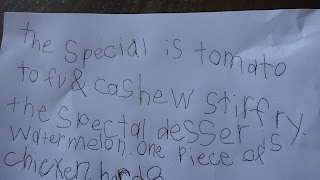 the special is tomato
tofu & cashew stirfry.
the spectal desser is
watermelon. one piece of
chicken.